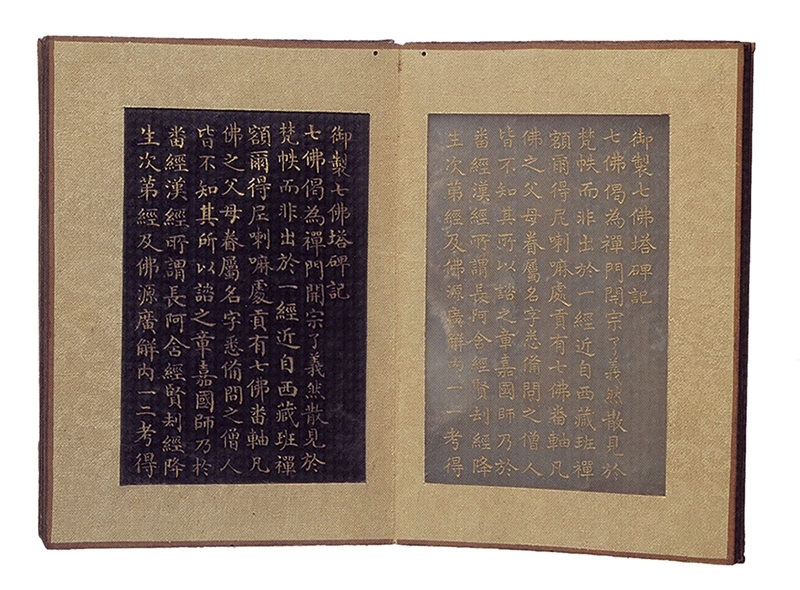 御製七佛塔碑記
七佛偈為禪門開宗了義然散見於
梵帙而非出於一經近自西藏班禪
額爾得尼喇嘛處貢有七佛畨軸凡
佛之父母眷屬名字悉俻問之僧人
皆不知其所以諮之章嘉國師乃於
畨經漢經所謂長阿含經賢刦經降
生次第經及佛源廣觧內一一考得
御製七佛塔碑記
七佛偈為禪門開宗了義然散見於
梵帙而非出於一經近自西藏班禪
額爾得尼喇嘛處貢有七佛畨軸凡
佛之父母眷屬名字悉俻問之僧人
皆不知其所以諮之章嘉國師乃於
畨經漢經所謂長阿含經賢刦經降
生次第經及佛源廣觧內一二考得